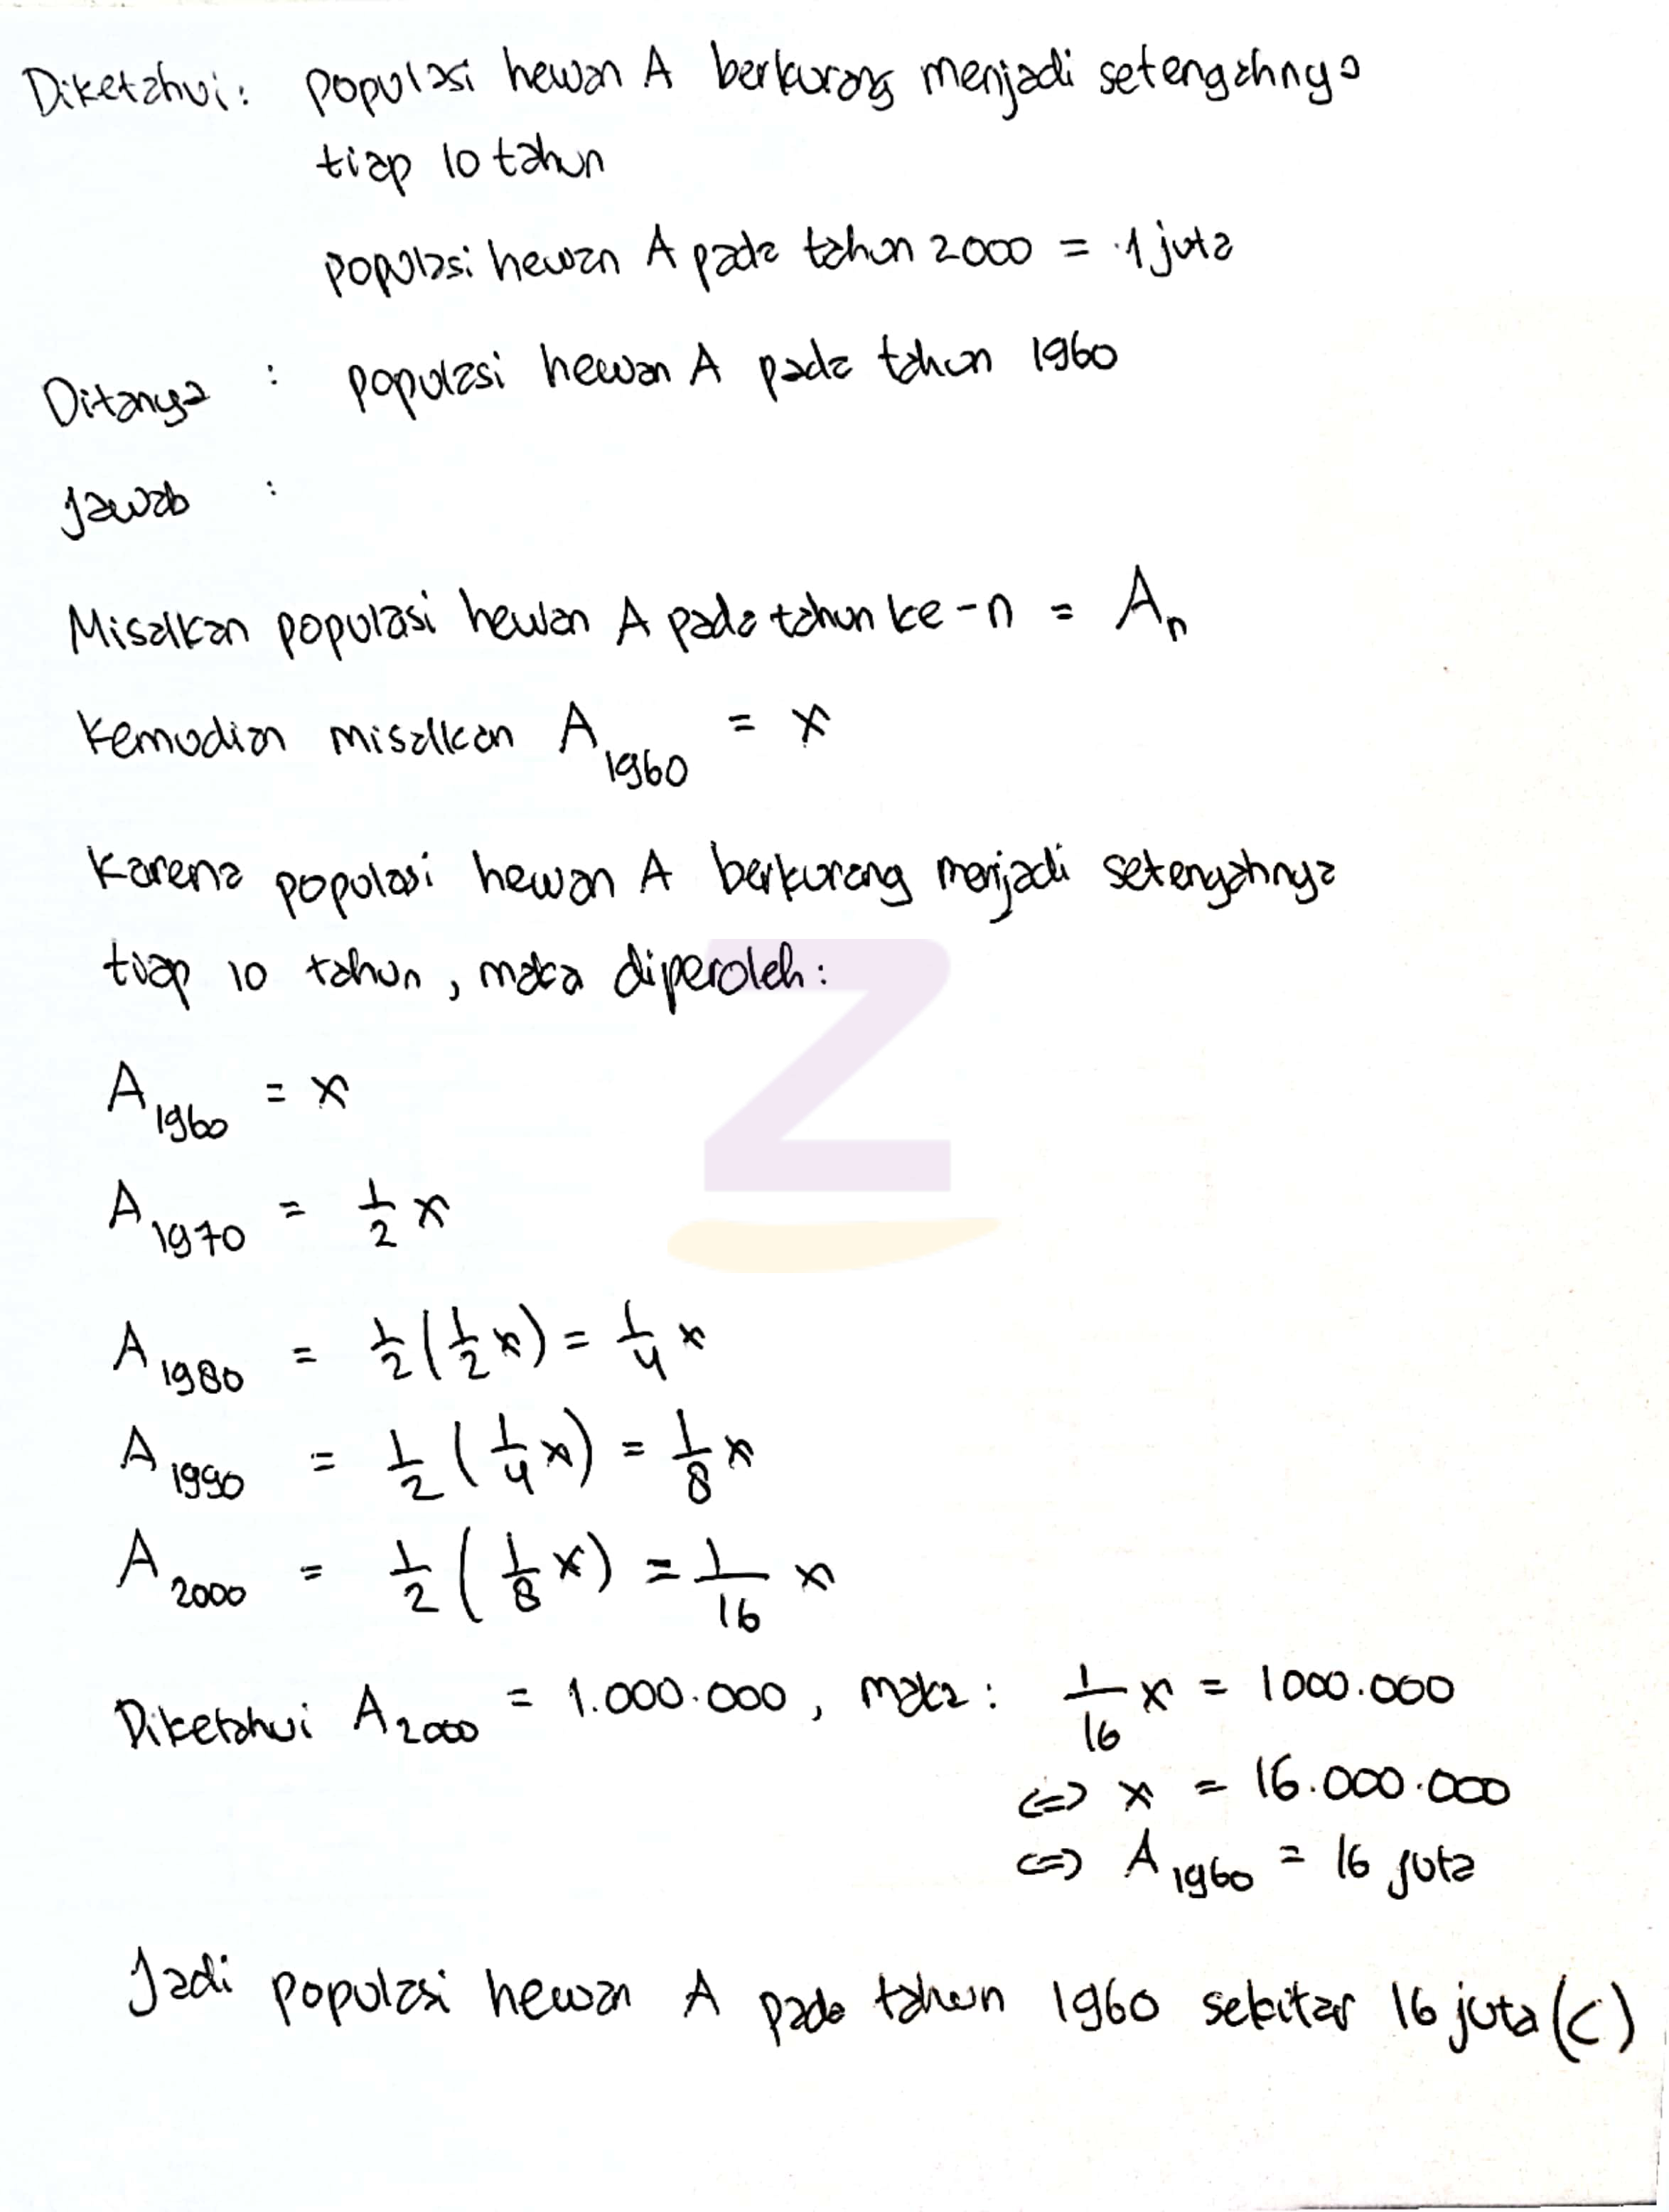 Diketahui: populasi hewan A berkurang menjadi setengahnya
tiap 10 tahun
populasi hewan A pada tahun 2000 = 1 juta
Ditanya : populasi hewan A pada tahun 1960
Jawab :
Misalkan populasi hewan A pada tahun ke-n = Aₙ
Kemudian misalkan A₁₉₆₀ = x
Karena populasi hewan A berkurang menjadi setengahnya
tiap 10 tahun, maka diperoleh:
Z
A₁₉₆₀ = x
A₁₉₇₀ = 1/2 x
A₁₉₈₀ = 1/2 (1/2 x) = 1/4 x
A₁₉₉₀ = 1/2 (1/4 x) = 1/8 x
A₂₀₀₀ = 1/2 (1/8 x) = 1/16 x
Diketahui A₂₀₀₀ = 1.000.000, maka: 1/16 x = 1000.000
⇔ x = 16.000.000
⇔ A₁₉₆₀ = 16 juta
Jadi populasi hewan A pada tahun 1960 sekitar 16 juta (C)